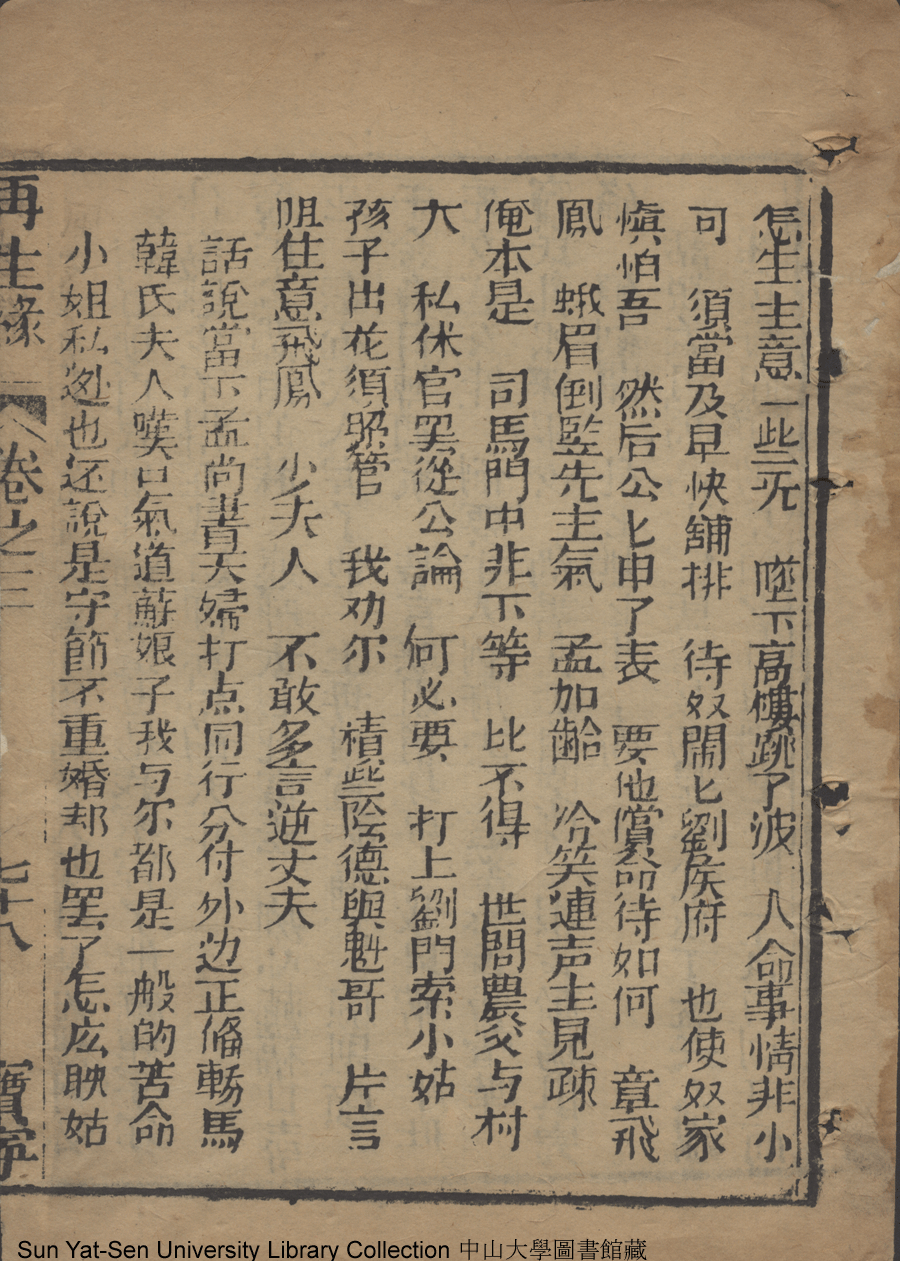 怎生主意一些无　墜下高樓跳了波　人命事情非小
可　須當及早快舖排　待奴鬧匕劉侯府　也使奴家
慎怕吾　然后公匕申了表　要他償命待如何　章飛
鳳　蛾眉倒監先主氣　孟加齡　冷笑連声主見疎
俺本是　司馬門中非下等　比不得　世間農父与村
大　私休官罢從公論　何必要　打上劉門索小姑
孩子出花須照管　我劝尔　積些陰德與魁哥　片言
咀住意飛鳳　少夫人　不敢多言逆丈夫
話說當下孟尚書夫婦打点同行分付外边正偹轎馬
韓氏夫人嘆口氣道蘇娘子我与尔都是一般的苦命
小姐私逃也还說是守節不重婚却也罢了怎庅映姑
再生緣　卷之三　七十八　寶寧
Sun Yat-Sen University Library Collection 中山大學圖書館藏